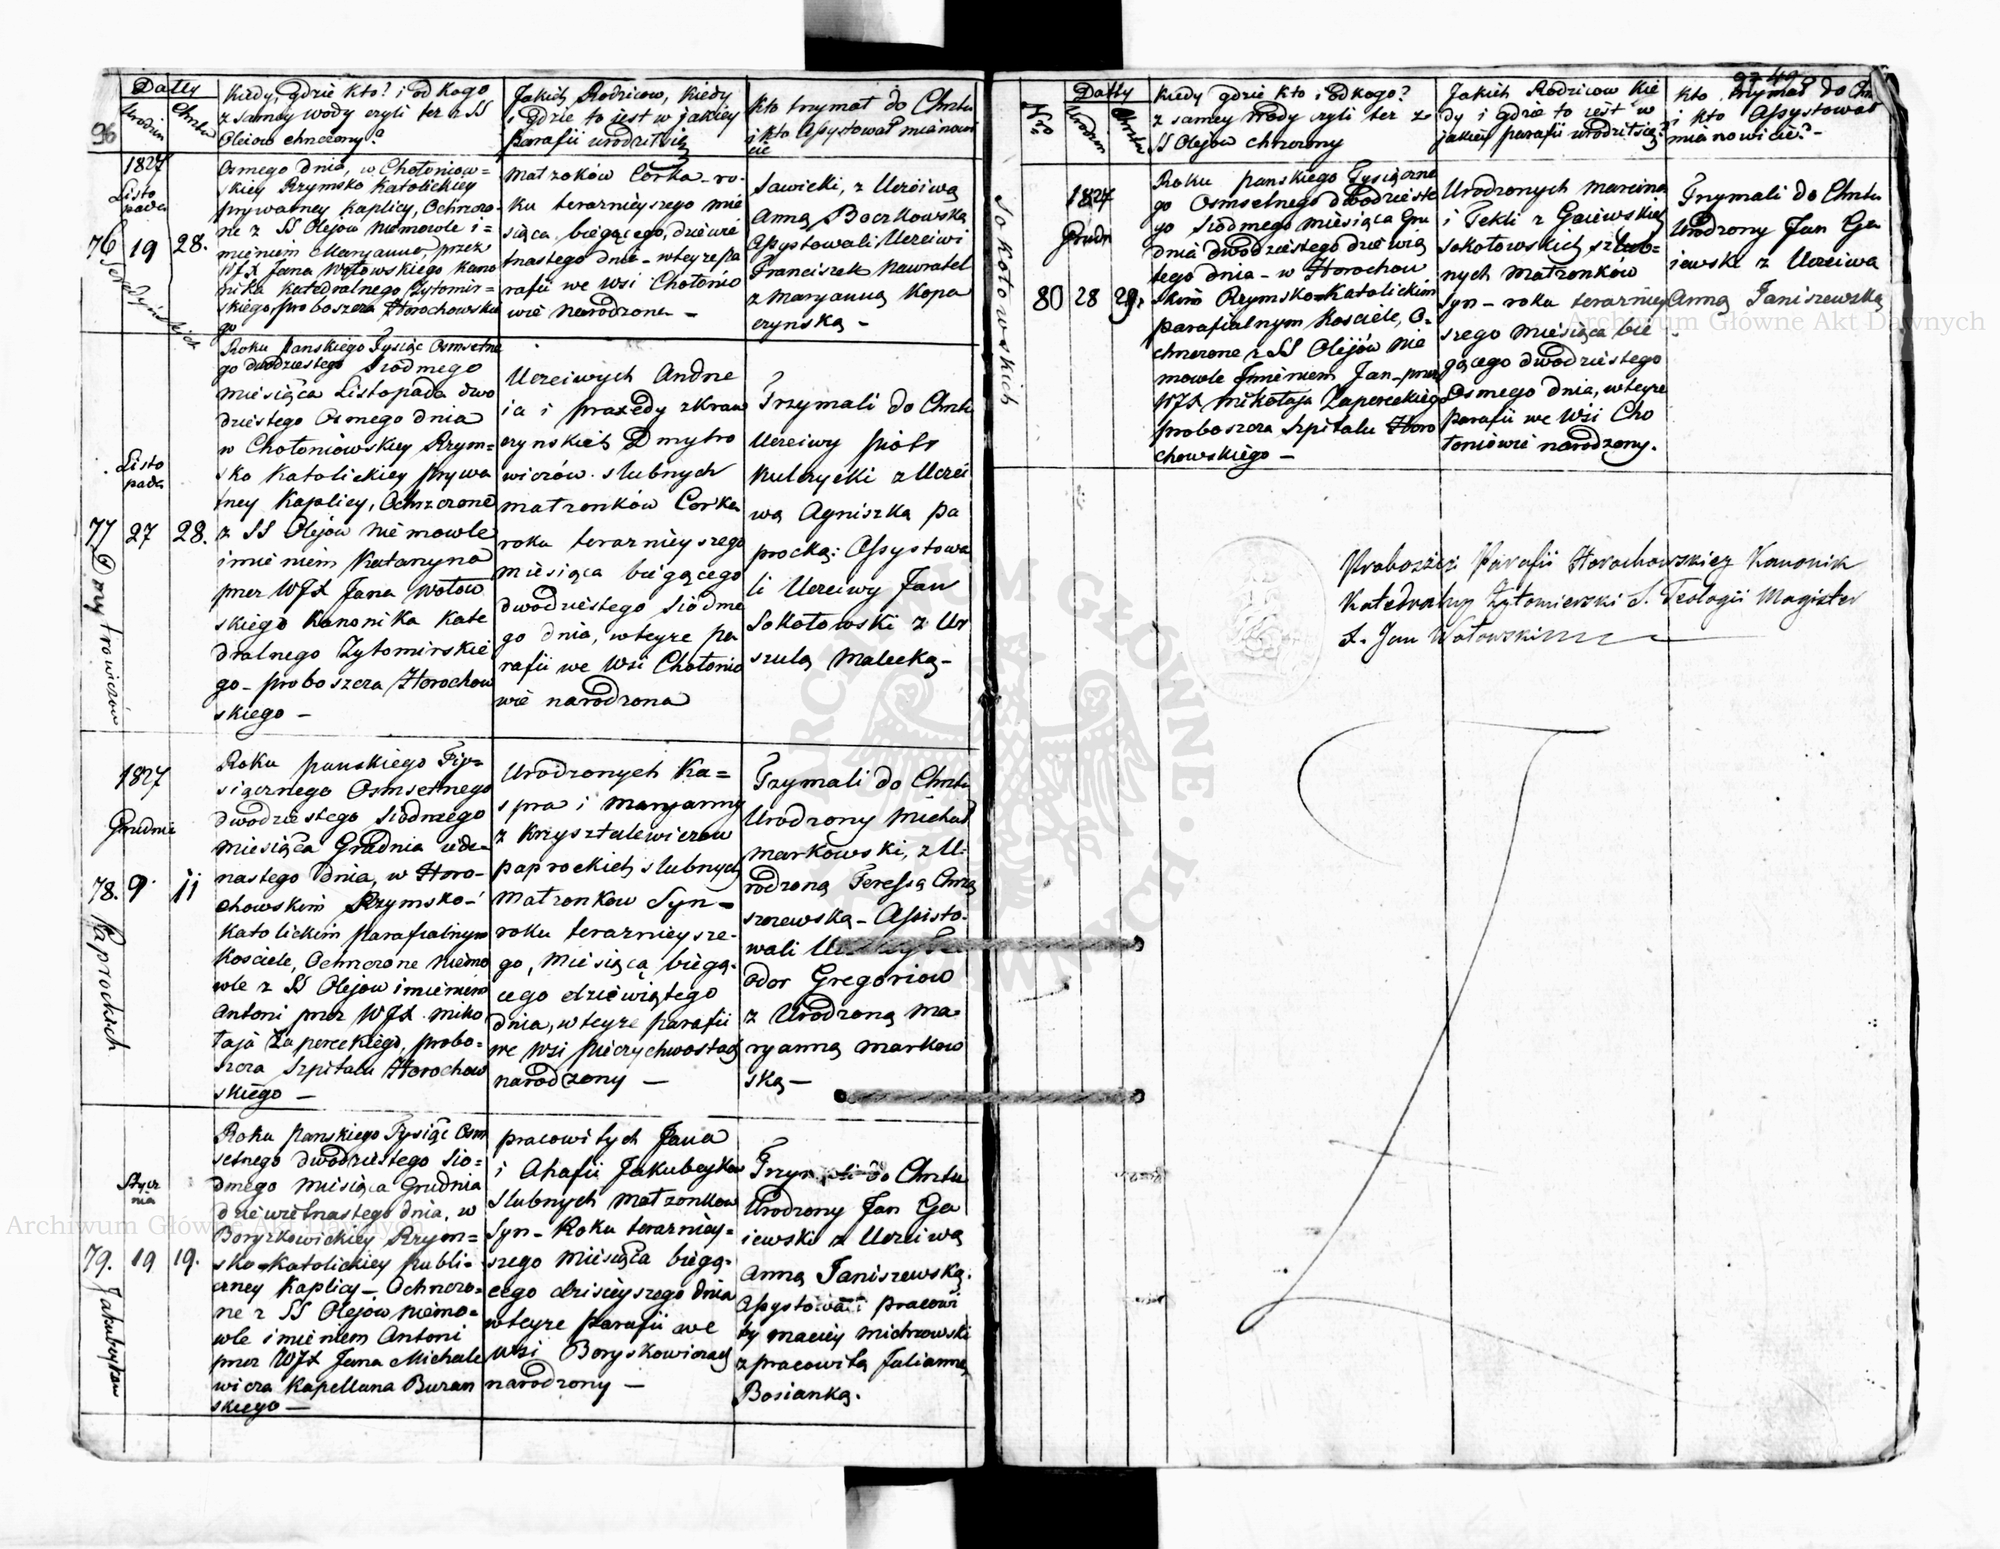 96
Datty
Urodzin
Chrztu
Kiedy, gdzie kto? i od kogo
z samey wody czyli też z SS
Olejow chrzczony?
Jakich Rodzicow, Kiedy
i gdzie to jest w jakiey
Parafii urodził się
Kto trzymał do Chrztu
i kto Assystował mianowi
cie
1827
Listo
pada
76
19
28.
Osmego dnia, w Chołoniow=
skiey Rzymsko Katolickiey
prywatney Kaplicy, Ochrzczo-
ne z SS Olejów Niemowle i=
mieniem Maryanna, przez
WJX Jana Wołowskiego Kano
nika Katedralnego Żytomir=
skiego, proboszcza Horochowskie
go
Małżoków Corka - ro-
ku terazniejszego mie
siąca biegącego, dziewie
tnastego dnia - wteyze pa
rafii we Wsi Chołonio
wie narodzona -
Sawicki, z Uczciwą
Anną Boczkowską
Assystowali Uczciwi
Franciszek Nawratel
z Maryanną Kopa
czynską -
Listo
pada
77
27
28.
Dmytrowiczów
Roku Panskiego Tysiąc Osmsetne
go dwódziestego Siodmego
miesiąca Listopada dwo
dziestego Osmego dnia
w Chołoniowskiey Rzym=
sko Katolickiey prywa
tney Kaplicy, Ochrzczone
z SS Olejów Niemowle
imieniem Katarzyna
przez WJX Jana Wołow
skiego Kanonika Kate
dralnego Zytomirskie
go - proboszcza Horochow
skiego -
Uczciwych Andrze
ia i praxedy z Kraw
czynskich Dmytro
wiczów slubnych
małzonków Corka
roku terazniey szego
miesiąca biegącego
dwodziestego Siodme
go dnia, wteyze pa
rafii we Wsi Chołonio
wie narodzona
Trzymali do Chrztu
Uczciwy Piotr
Kulczycki z Uczci
wą Agniszką Pa
procką: Assystowa
li Uczciwy Jan
Sokołowski z Ur
szulą Malecką -
1827
Grudni
78.
9
11
Paprockich
Roku panskiego Tys=
siącznego Osmsetnego
dwodziestego Siodmego
miesiąca Grudnia iede=
nastego dnia, w Horo-
chowskim Rzymsko-
Katolickim parafialnym
Kosciele, Ochrzczone Niemo
wle z SS Olejow imieniem
Antoni przez WJX Miko
łaja Zapereckiego, probo=
szcza Szpitalu Horochow
skiego -
Urodzonych Ka=
spra i Maryanny
z Krzysztalewiczow
paprockich slubnych
Małzonkow Syn -
roku terazniey sze-
go, Miesiąca biegą-
cego dziewiątego
dnia, wteyze parafii
we Wsi Pieczychwostach
narodzony -
Trzymali do Chrztu
Urodzony Michał
Markowski, z U-
rodzoną Teressą Chrzą
szczewską - Assisto-
wali
odor Gregoriow
z Urodzoną Ma-
ryanną Markow
ską -
Stycz
nia
79.
19
19.
Jakubeykow
Roku Panskiego Tysiąc Osm
setnego dwodziestego Sio=
dmego miesiąca Grudnia
dziewietnastego dnia, w
Boryskowickiey Rzym=
sko-Katolickiey publi=
czney Kaplicy - Ochrzczo=
ne z SS Olejów Niemo=
wle imieniem Antoni
przez WJX Jana Michale
wicza Kapellana Buran
skiego -
pracowitych Jana
i Ahafii Jakubeykow
Slubnych Małzonkow
Syn - Roku terazniey=
szego Miesiąca biegą-
cego dzisieyszego dnia
wteyze Parafii we
Wsi Boryskowiczach
narodzony -
Trzymali do Chrztu
Urodzony Jan Ga
iewski z Uczciwą
Anną Janiszewską.
Assystowali pracowi
ty Maciey Michzowski
z pracowitą Julianną
Bosianką.
49
Nro
Datty
Urodzin
Chrztu
Kiedy gdzie kto i od kogo?
z samey Wody czyli też z
SS Olejow chrzczony
Jakich Rodzicow Kie
dy i gdzie to jest w
jakiey parafii urodził się?
Kto trzymał do Chrz
i kto Assystował
mianowicie? -
1827
Grudn
80
28
29.
Sokołowskich
Roku panskiego Tysiączne
go Osmsetnego dwodzieste
go Siodmego miesiąca Gru
dnia dwodziestego dziewią
tego dnia - w Horochow
skim Rzymsko-Katolickim
parafialnym Kosciele, O-
chrzczone z SS Olejów Nie
mowle Imieniem Jan - przez
WJX Mikołaja Zapereckiego
proboszcza Szpitalu Horo
chowskiego -
Urodzonych Marcina
i Tekli z Gaiewskich
Sokołowskich szlub=
nych Małzonków
Syn - roku terazniey
szego Miesiąca bie
gącego dwodziestego
Osmego dnia, wteyze
Parafii we Wsi Cho
łoniowie narodzony.
Trzymali do Chrztu
Urodzony Jan Ga
iewski z Uczciwą
Anną Janiszewską
Proboszcz Parafii Horochowskiey Kanonik
Katedralny Zytomierski S. Teologii Magister
X. Jan Wołowski
ARCHIWUM GŁÓWNE
Archiwum Główne Akt Dawnych
Archiwum Główne Akt Dawnych